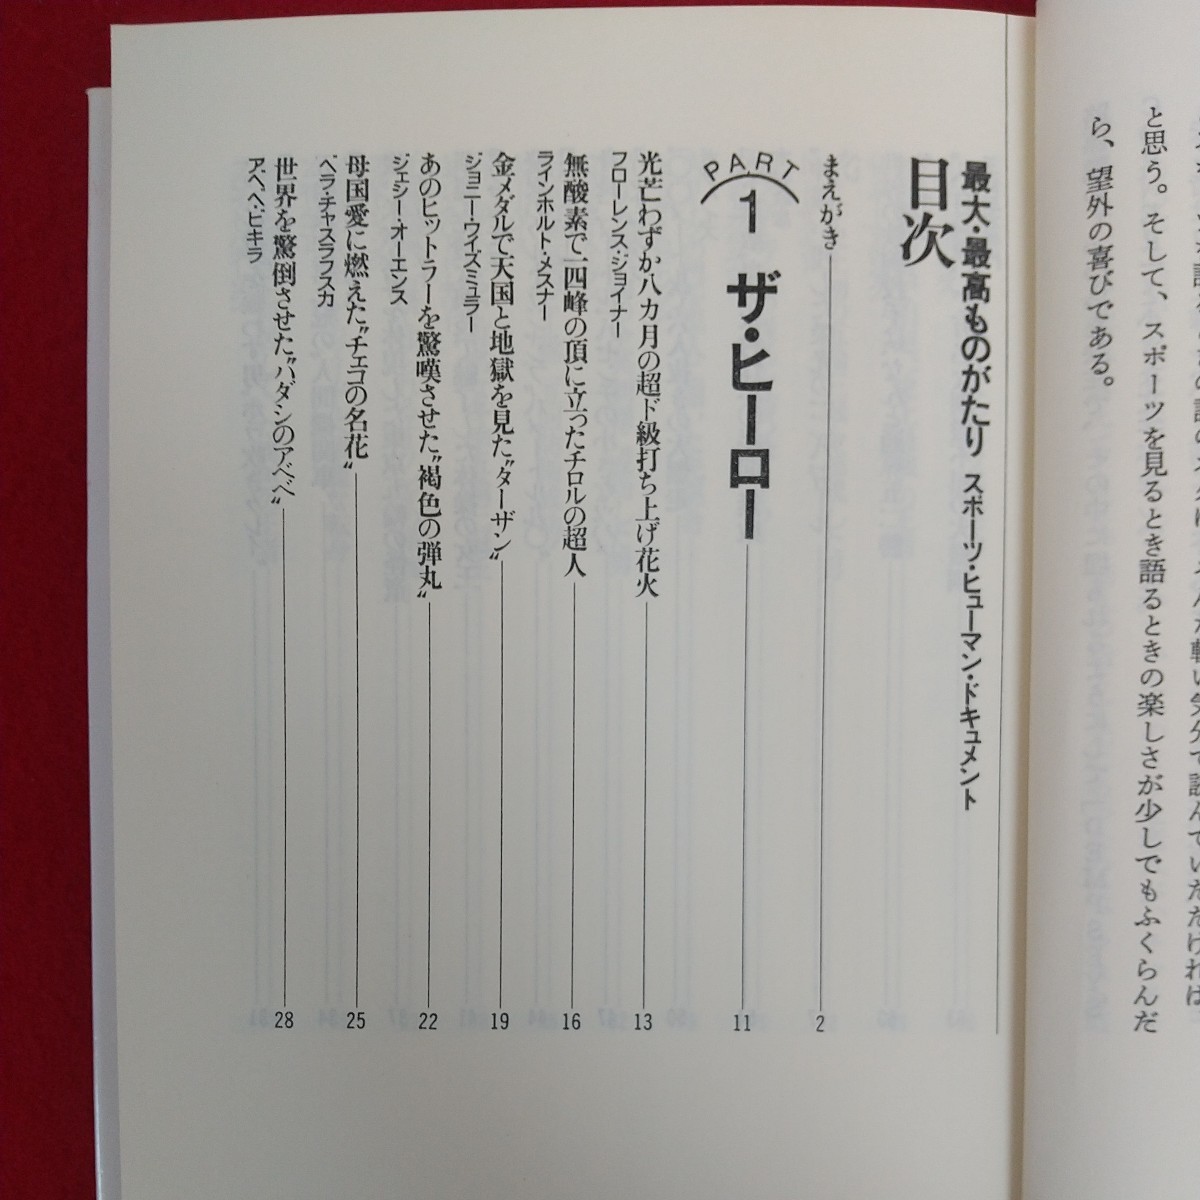 と思う。そして、スポーツを見るとき語るときの楽しさが少しでもふくらんだ
ら、望外の喜びである。
最大・最高ものがたり スポーツ・ヒューマン・ドキュメント
目次
まえがき 2
PART
1 ザ・ヒーロー 11
光芒わずか八カ月の超ド級打ち上げ花火 13
フローレンス・ジョイナー
無酸素で一四峰の頂に立ったチロルの超人 16
ラインホルト・メスナー
金メダルで天国と地獄を見た〝ターザン〟 19
ジョニー・ワイズミュラー
あのヒットラーを驚嘆させた〝褐色の弾丸〟 22
ジェシー・オーエンス
母国愛に燃えた〝チェコの名花〟 25
ベラ・チャスラフスカ
世界を驚倒させた〝ハダシのアベベ〟 28
アベベ・ビキラ